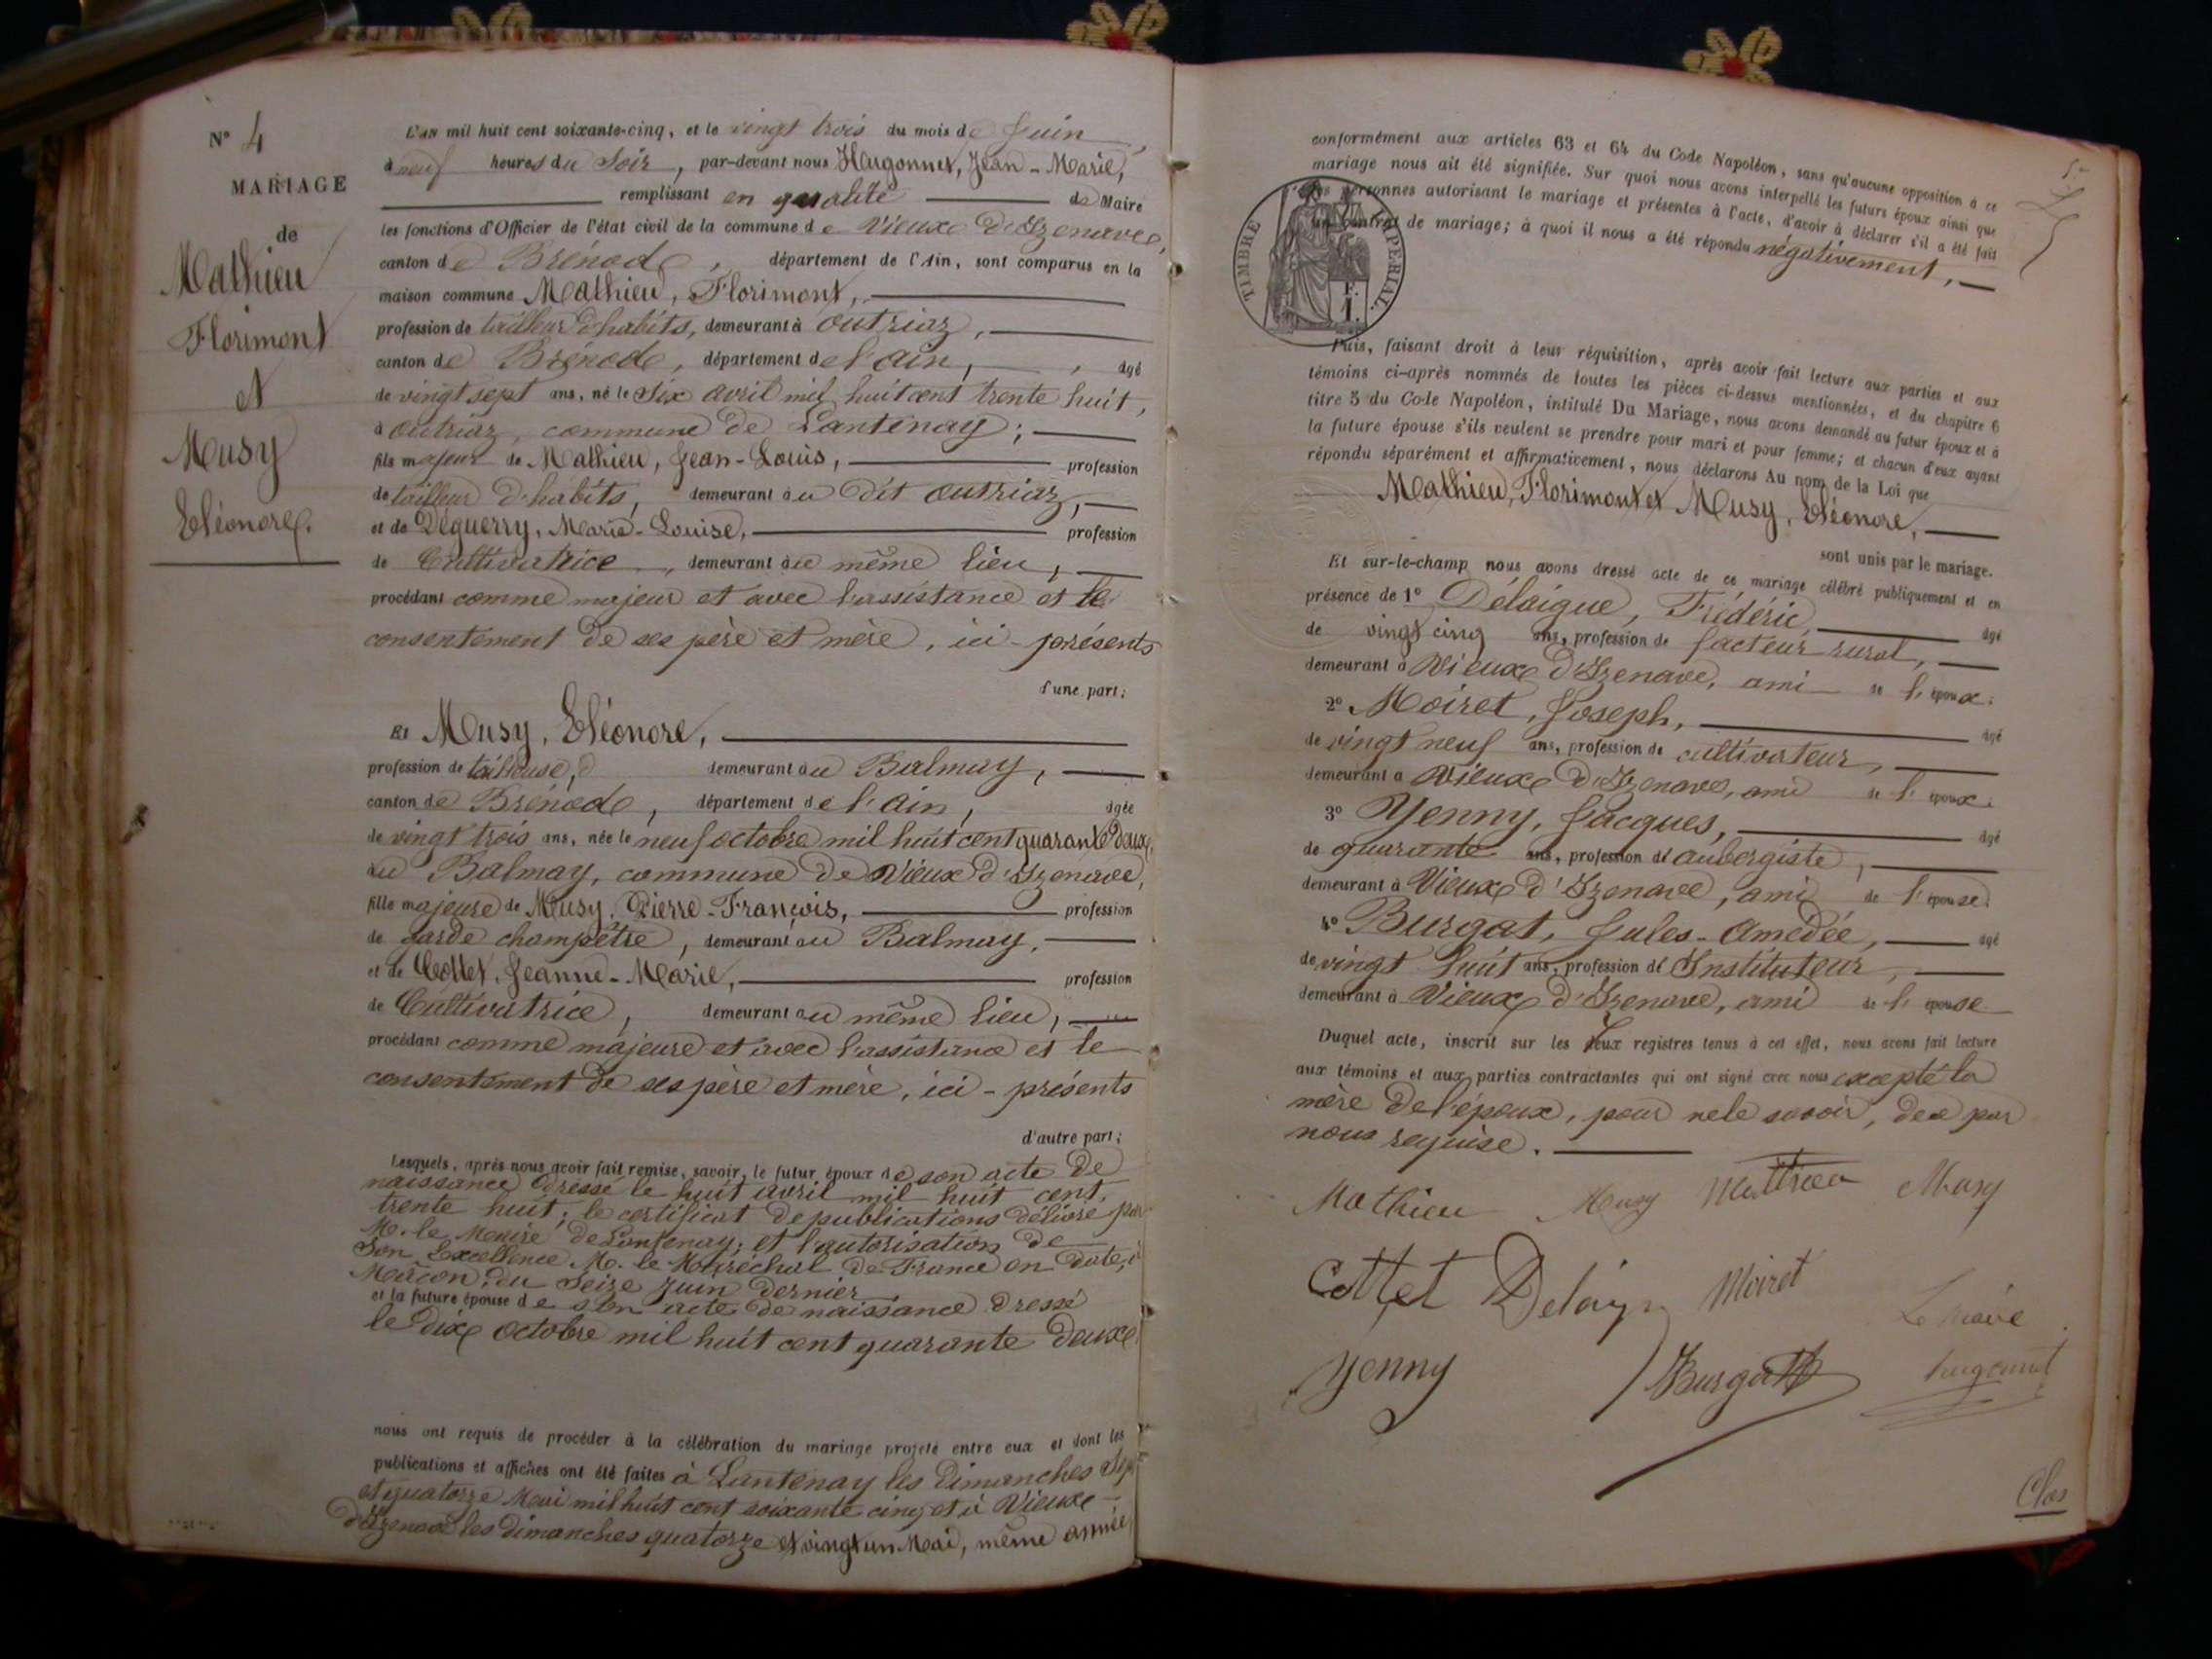 N° 4
MARIAGE
de
Mathieu
Florimont
et
Musy
Eléonore.
L'an mil huit cent soixante-cinq, et le vingt trois du mois de Juin,
à neuf heures du Soir, par-devant nous Hugonnet, Jean-Marie,
remplissant en qualité de Maire
les fonctions d'Officier de l'état civil de la commune de Vieux D'Izenave,
canton de Brénod, département de l'Ain, sont comparus en la
maison commune Mathieu, Florimont,
profession de tailleur d'habits, demeurant à Outriaz,
canton de Brénod, département de l'ain, âgé
de vingt sept ans, né le Six avril mil huit cent trente huit,
à Outriaz, commune de Lantenay;
fils majeur de Mathieu, Jean-Louis, profession
de tailleur d'habits, demeurant au dit Outriaz,
et de Déguerry, Marie-Louise, profession
de Cultivatrice, demeurant au même lieu,
procédant comme majeur et avec l'assistance et le
consentement de ses père et mère, ici-présents
d'une part;
Et Musy, Eléonore,
profession de tailleuse, demeurant au Balmay,
canton de Brénod, département de l'Ain, âgée
de vingt trois ans, née le neuf octobre mil huit cent quarante deux,
au Balmay, commune de Vieux d'Izenave,
fille majeure de Musy, Pierre-François, profession
de garde champêtre, demeurant au Balmay,
et de Cottet, Jeanne-Marie, profession
de Cultivatrice, demeurant au même lieu,
procédant comme majeure et avec l'assistance et le
consentement de ses père et mère, ici-présents
d'autre part;
Lesquels, après nous avoir fait remise, savoir, le futur époux de son acte de
naissance dressé le huit avril mil huit cent
trente huit; le certificat de publications délivré par
M. le Maire de Lantenay; et l'autorisation de
Son Excellence M. le Maréchal de France en date, à
Mâcon, du Seize Juin dernier
et la future épouse de son acte de naissance dressé
le dix octobre mil huit cent quarante deux
nous ont requis de procéder à la célébration du mariage projeté entre eux et dont les
publications et affiches ont été faites à Lantenay les Dimanches Sept
et quatorze Mai mil huit cent soixante cinq et à Vieux
d'Izenave les dimanches quatorze et vingt un Mai, même année,
conformément aux articles 63 et 64 du Code Napoléon, sans qu'aucune opposition à ce
mariage nous ait été signifiée. Sur quoi nous avons interpellé les futurs époux ainsi que
les personnes autorisant le mariage et présentes à l'acte, d'avoir à déclarer s'il a été fait
un contrat de mariage; à quoi il nous a été répondu négativement,
TIMBRE IMPÉRIAL
F.
1.
Puis, faisant droit à leur réquisition, après avoir fait lecture aux parties et aux
témoins ci-après nommés de toutes les pièces ci-dessus mentionnées, et du chapitre 6
titre 5 du Code Napoléon, intitulé Du Mariage, nous avons demandé au futur époux et à
la future épouse s'ils veulent se prendre pour mari et pour femme; et chacun d'eux ayant
répondu séparément et affirmativement, nous déclarons Au nom de la Loi que
Mathieu, Florimont et Musy, Eléonore,
sont unis par le mariage.
Et sur-le-champ nous avons dressé acte de ce mariage célébré publiquement et en
présence de 1° Délaigue, Frédéric, âgé
de vingt cinq ans, profession de facteur rural,
demeurant à Vieux D'Izenave, ami de l'époux.
2° Moiret, Joseph, âgé
de vingt neuf ans, profession de cultivateur,
demeurant à Vieux D'Izenave, ami de l'époux.
3° Yenny, Jacques, âgé
de quarante ans, profession d'aubergiste,
demeurant à Vieux d'Izenave, ami de l'épouse.
4° Burgat, Jules-Amédée, âgé
de vingt huit ans, profession d'Instituteur,
demeurant à Vieux d'Izenave, ami de l'épouse
Duquel acte, inscrit sur les deux registres tenus à cet effet, nous avons fait lecture
aux témoins et aux parties contractantes qui ont signé avec nous excepté la
mère de l'époux, pour ne le savoir, de ce par
nous requise.
Mathieu Musy Mathieu Musy
Cottet Delaigue Moiret
Le maire
Yenny Burgat hugonnet
Clos